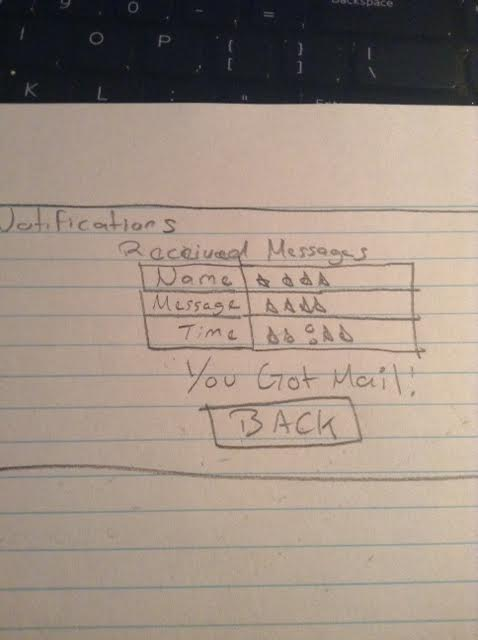 9 0 - = Backspace
I O P { [ } ] | \
K L : "
Notifications
Received Messages
Name
Message
Time
You Got Mail!
BACK